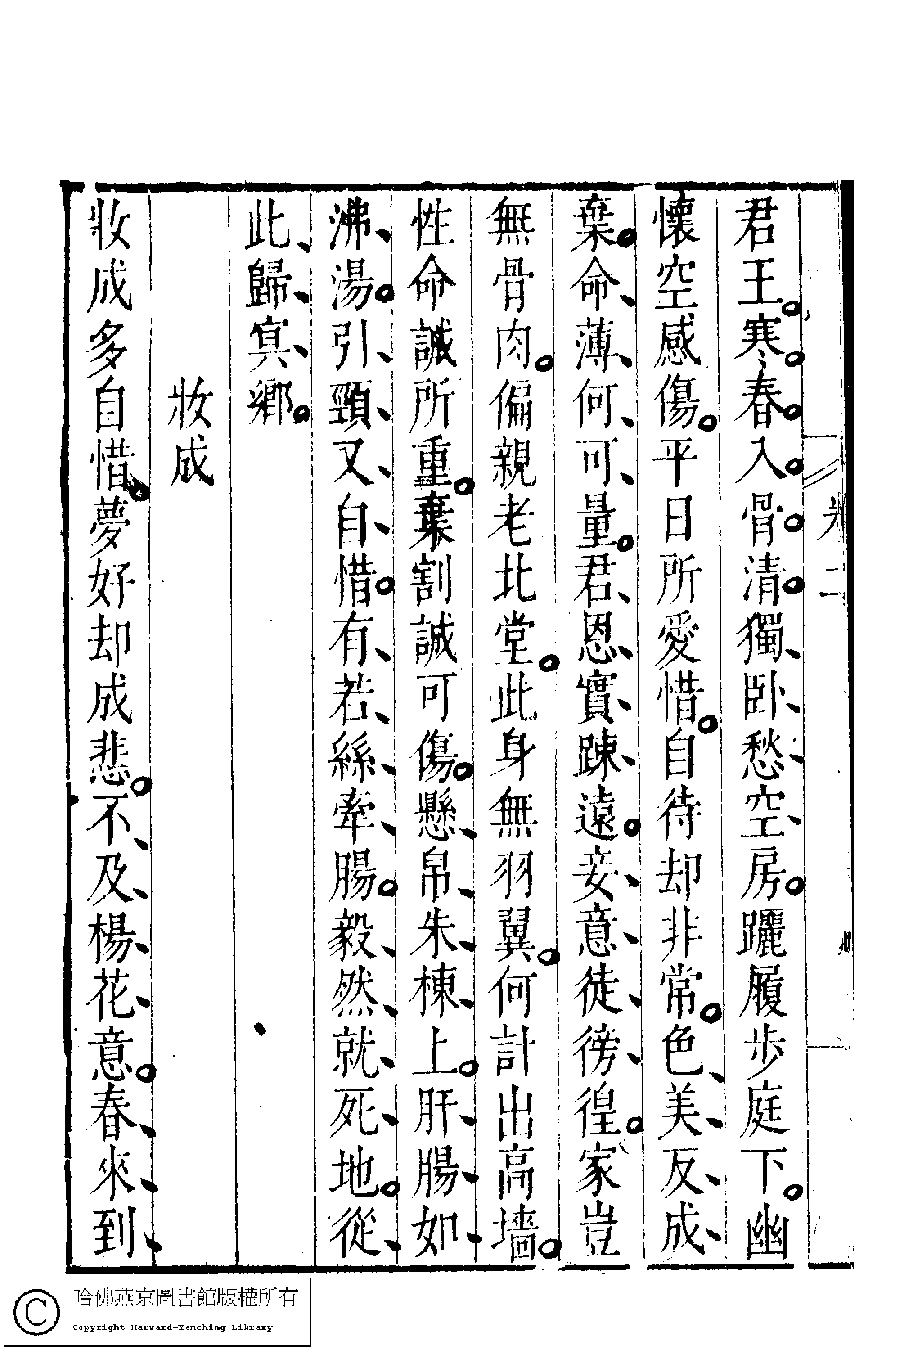 君王寒春入骨清獨臥愁空房躧履步庭下幽
懷空感傷平日所愛惜自待却非常色美反成
棄命薄何可量君恩實踈遠妾意徒徬徨家豈
無骨肉偏親老北堂此身無羽翼何計出高墻
性命誠所重棄割誠可傷懸帛朱棟上肝腸如
沸湯引頸又自惜有若絲牽腸毅然就死地從
此歸冥鄉
妝成
妝成多自惜夢好却成悲不及楊花意春來到
哈佛燕京圖書館版權所有
Copyright Harvard-Yenching Library